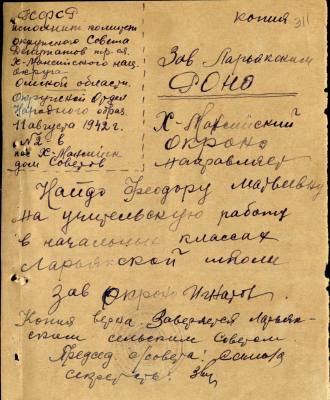 РСФСР
Исполнит. комитет
окружного Совета
депутатов тр-ся
Х-Мансийского нац.
округа
Омской области
Окружной Отдел
Народного образ.
11 августа 1942 г.
№ 2-в
пос. Х-Мансийск
дом Советов
Копия
311
Зав Ларьякским
РОНО
Х-Мансийский
ОкрОНО
направляет
Найдо Феодору Матвеевну
на учительскую работу
в начальных классах
Ларьякской школы
Зав ОкрОНО Игнатов.
Копия верна: Заверяется Ларьяк-
ским сельским Советом
Председ. с/совета:
Секретарь: